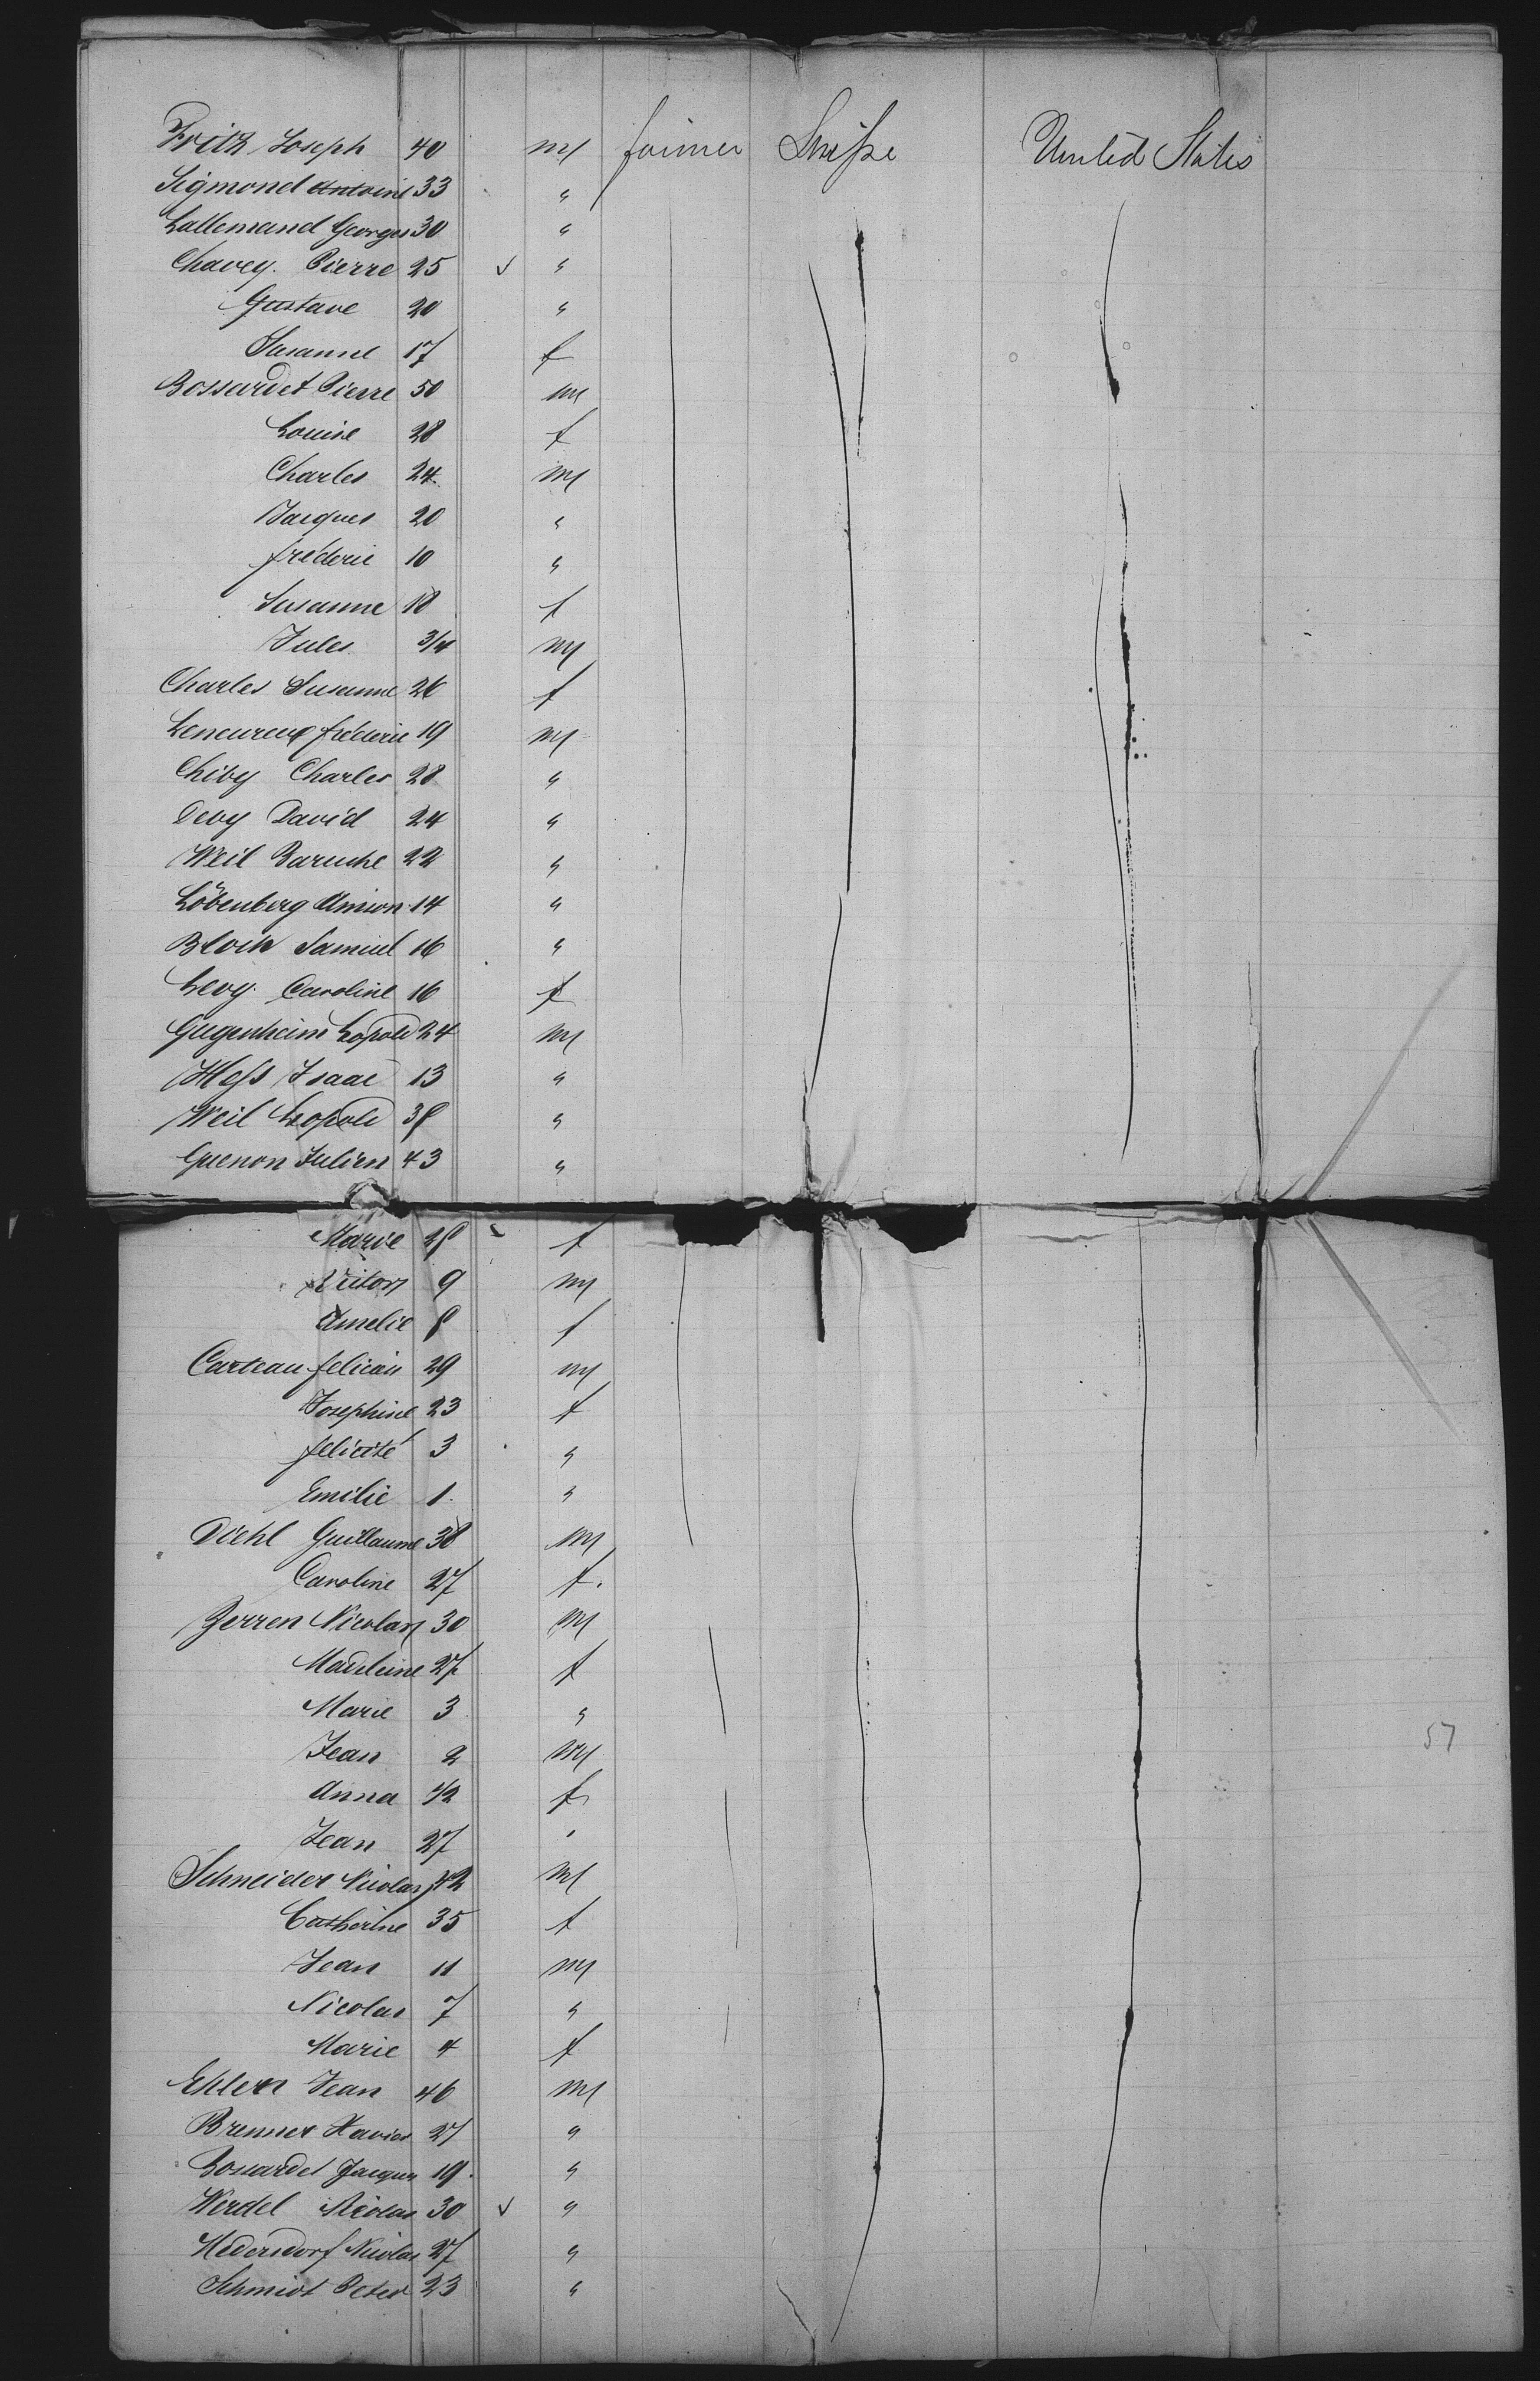 Fritz Joseph 40 m farmer Suisse United States
Sigmond Antoine 33 "
Lallemand Georges 30 "
Chavey. Pierre 25 v "
Gustave 20 "
Susanne 17 f
Bossardet Pierre 50 m
Louise 28 f
Charles 24 m
Jacques 20 "
frédéric 10 "
Susanne 18 f
Jules 3/4 m
Charles Susanne 26 f
frédéric 19 m
Chiby Charles 28 "
Devy David 24 "
Weil Baruche 22 "
Löbenberg 14 "
Bloch Samuel 16 "
Levy. Caroline 16 f
Gugenheim Leopold 24 m
Hess Isaac 13 "
Weil Leopold 38 "
Guenon Julien 43 "
Marie 28 f
Victor 9 m
Amelie 8 f
Carteau felicien 29 m
Josephine 23 f
felicité 3 "
Emilie 1 "
Diehl Guillaume 38 m
Caroline 27 f.
Zerren Nicolas 30 m
Madeleine 27 f
Marie 3 "
Jean 2 m
Anna 1/2 f
Jean 27 "
Schneider Nicolas 42 m
Catherine 35 f
Jean 11 m
Nicolas 7 "
Marie 4 f
Ehlen Jean 46 m
Brenner Xavier 27 "
Bossardet Jacques 19 "
Werdel Nicolas 30 v "
Hedersdorf Nicolas 27 "
Schmidt Peter 23 "
57